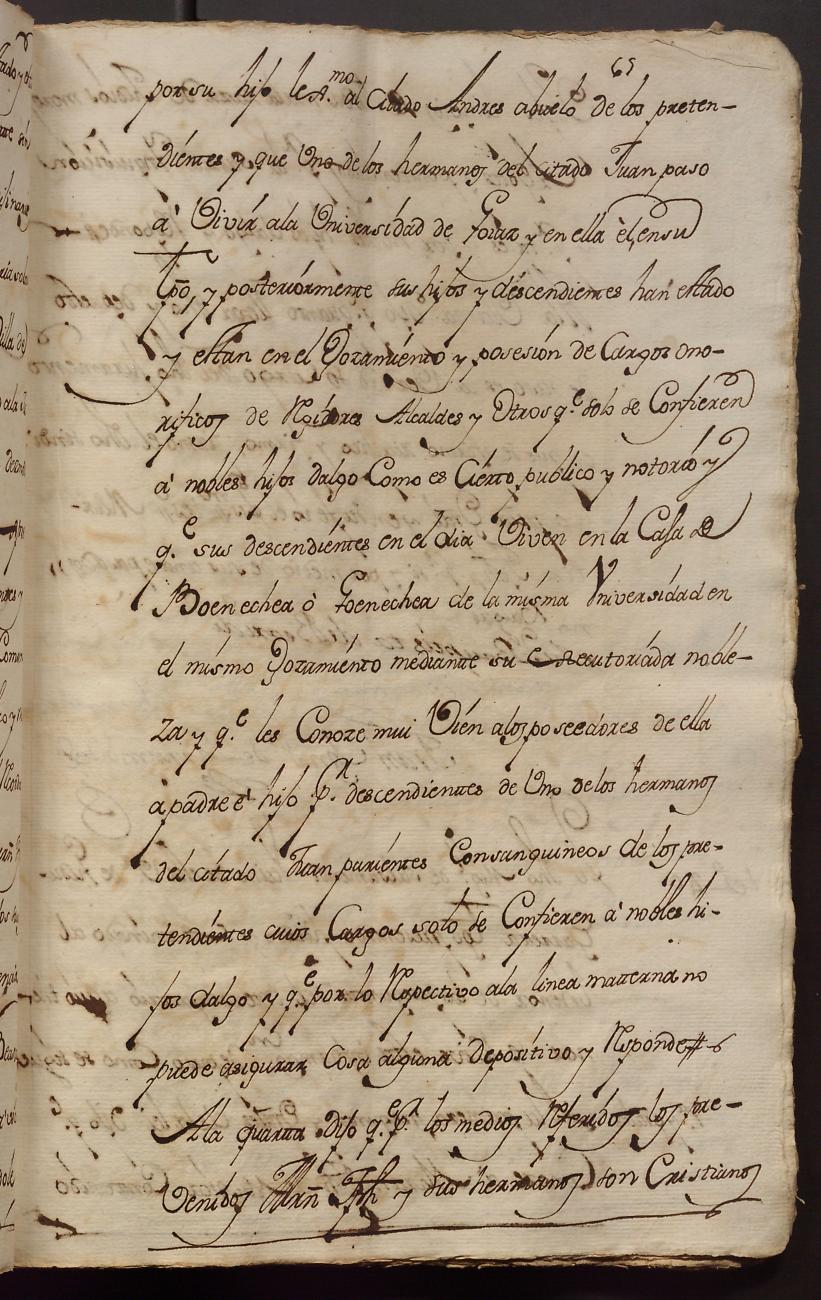 65
por su hijo leg.mo al Citado Andres abuelo de los preten-
dientes y que Uno de los hermanos del citado Juan paso
a' Vivir ala Universidad de Goiaz y en ella èl, en su
tpo, y posteriormente sus hijos y descendientes han estado
y estan en el Gozamiento y posesión de Cargos ono-
rificos de Rejidores Alcaldes y Otros q.e solo se Confieren
à nobles hijos dalgo Como es Cierto publico y notorio y
q.e sus descendientes en el dia Viven en la Casa de
Boenechea ò Goenechea de la misma Universidad en
el mismo Gozamiento mediante su executoriada noble-
za y q.e les Conoze mui Vien alos poseedores de ella
a padre è hijo p.r descendientes de Uno delos hermanos
del citado Juan parientes Consanguineos de los pre-
tendientes cuios Cargos solo se Confieren à nobles hi-
jos dalgo y q.e por lo Respectivo ala linea materna no
puede asigurar Cosa alguna depositivo y Responde
Ala quarta dijo q.e p.r los medios Referidos los pre-
venidos Mrñ Jph y sus hermanos son Cristianos